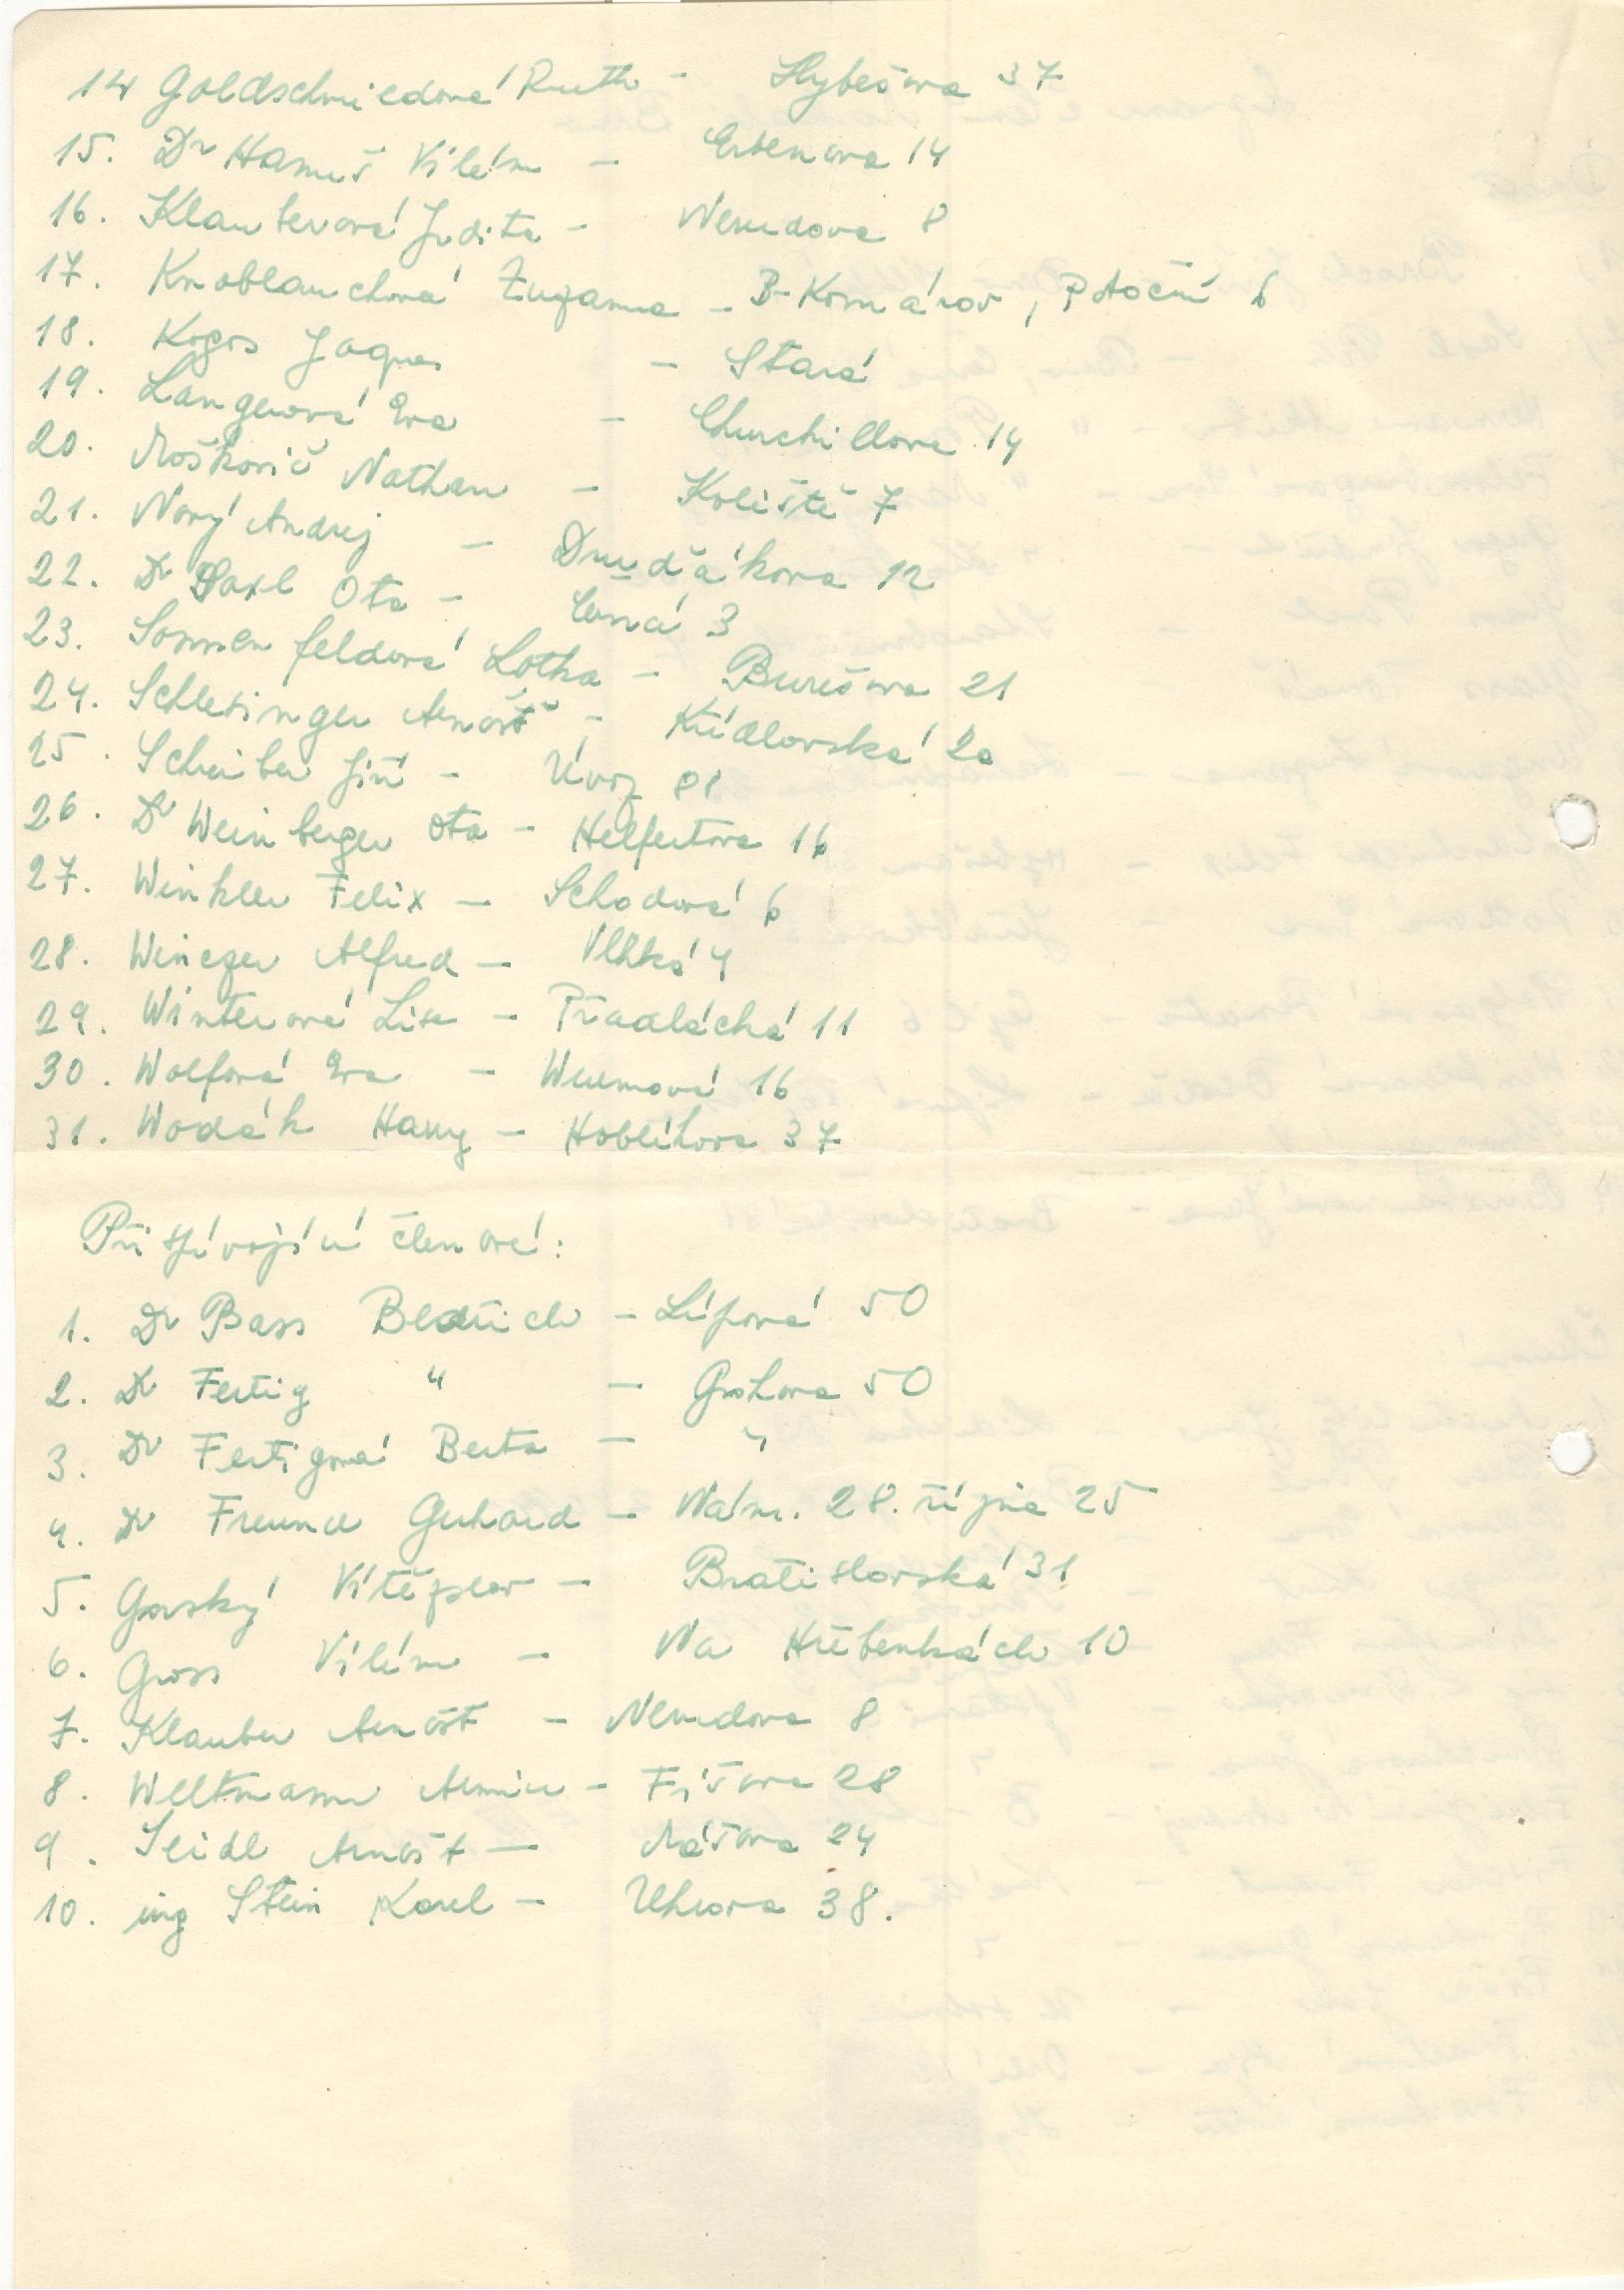 14 Goldschmiedová Ruth - Hybešova 37
15. Dr Hanuš Vilém - Erbenova 14
16. Klauberová Judita - Nerudova 8
17. Knoblauchová Zuzanna - B-Komárov, Potoční 6
18. Kogos Jaques - Stará
19. Langerová Eva - Churchillova 14
20. Moškovič Nathan - Koliště 7
21. Nový Andrej - Drušťákova 12
22. Dr Saxl Ota - Lesná 3
23. Sonnenfeldová Lotka - Burešova 21
24. Schlesinger Arnošt - Křídlovská 20
25. Schreiber Jiří - Úvoz 88
26. Dr Weinberger Ota - Helfertova 16
27. Winkler Felix - Schodová 6
28. Wineger Alfred - Vlhká 4
29. Winterová Lisa - Přadlácká 11
30. Wolfová Eva - Wurmová 16
31. Wodák Harry - Hoblíkova 37
Přispívající členové:
1. Dr Bass Bedřich - Lipová 50
2. Dr Fertig " - Grohova 50
3. Dr Fertigová Berta - "
4. Dr Freund Gerhard - Nám. 28. října 25
5. Gorský Vítězslav - Bratislavská 31
6. Gross Vilém - Na Hřebenkách 10
7. Klauber Arnošt - Nerudova 8
8. Weltmann Armin - Fišova 28
9. Seidl Arnošt - Mášova 24
10. ing Stein Karel - Uhrova 38.